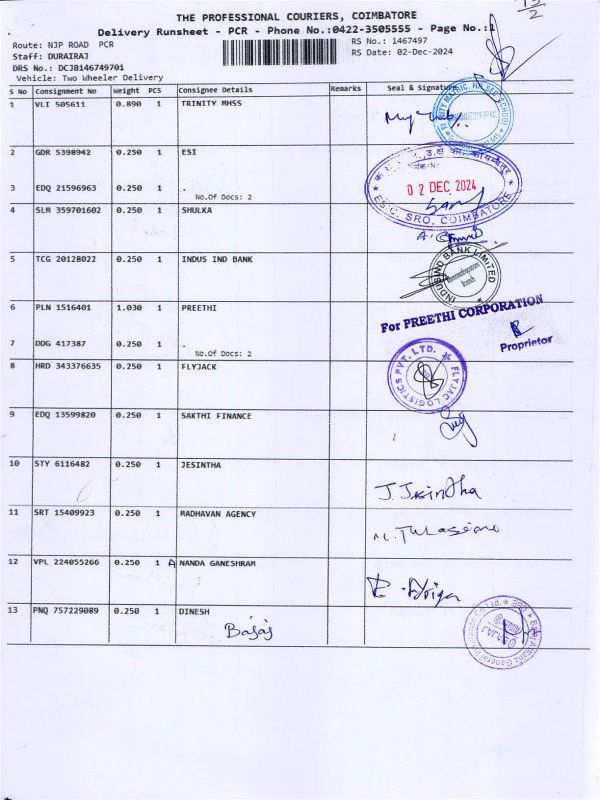 THE PROFESSIONAL COURIERS, COIMBATORE
Delivery Runsheet - PCR - Phone No.:0422-3505555 - Page No.:1
Route: NJP ROAD PCR
RS No.: 1467497
Staff: DURAIRAJ
RS Date: 02-Dec-2024
DRS No.: DCJB146749701
Vehicle: Two Wheeler Delivery
S No Consignment No Weight PCS Consignee Details Remarks Seal & Signature
1 VLI 505611 0.890 1 TRINITY MHSS
2 GDR 5398942 0.250 1 ESI
3 EDQ 21596963 0.250 1 .
No.Of Docs: 2
02 DEC 2024
ESIC. SRO, COIMBATORE
4 SLM 359701602 0.250 1 SHULKA
5 TCG 20128022 0.250 1 INDUS IND BANK
INDUSIND BANK LIMITED
6 PLN 1516401 1.030 1 PREETHI
For PREETHI CORPORATION
Proprietor
7 DDG 417387 0.250 1 .
No.Of Docs: 2
8 HRD 343376635 0.250 1 FLYJACK
FLYJAC LOGISTICS PVT. LTD.
9 EDQ 13599820 0.250 1 SAKTHI FINANCE
10 STY 6116482 0.250 1 JESINTHA
J. Jesintha
11 SRT 15409923 0.250 1 MADHAVAN AGENCY
12 VPL 224055266 0.250 1 A NANDA GANESHRAM
13 PNQ 757229089 0.250 1 DINESH
Bajaj